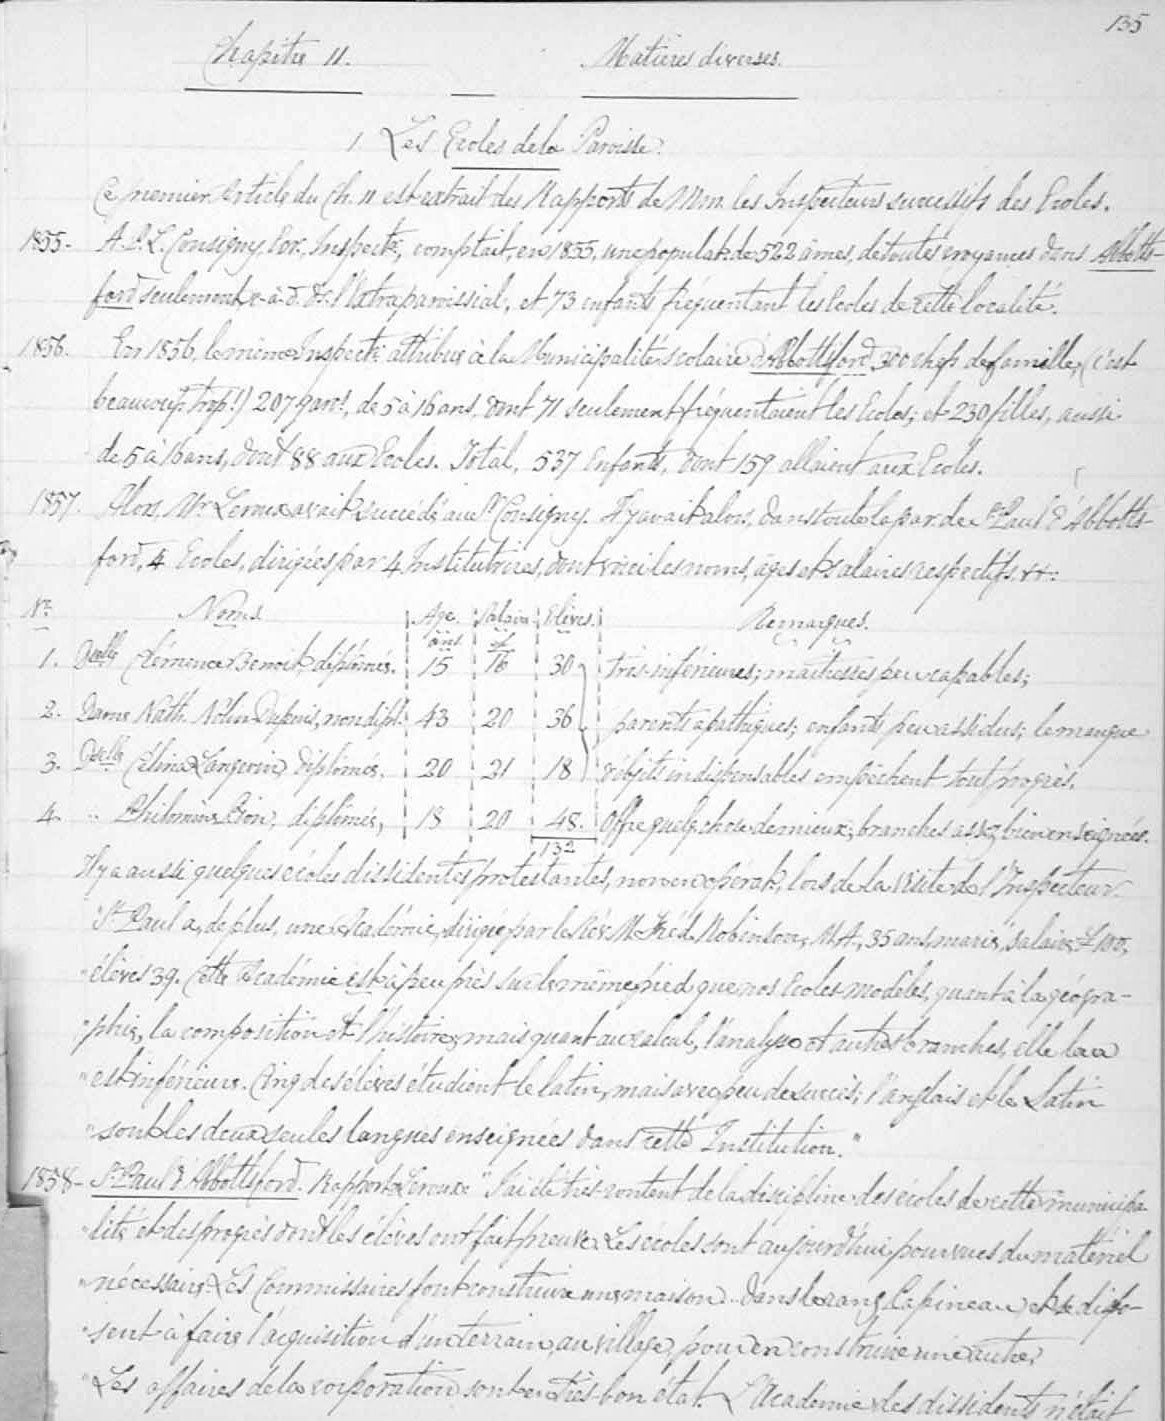 135
Chapitre II. Matières diverses.
1 Les Ecoles de la Paroisse.
Ce premier Article du Ch. II est extrait des Rapports de Mm. les Inspecteurs successifs des Ecoles.
1855- A.P.L. Consigny, Ecr., Inspectr, comptait, en 1855, une populat. de 522 âmes, de toutes croyances dans Abbotts-
ford seulement, c-à-d. ds. l'Extraparoissial, et 73 enfants fréquentant les Ecoles de cette localité.
1856. En 1856, le même Inspectr attribue à la Municipalité scolaire d'Abbottsford 300 chefs de famille, (c'est
beaucoup trop!) 207 garç., de 5 à 16 ans, dont 71 seulement fréquentaient les Ecoles; et 230 filles, aussi
de 5 à 16 ans, dont 88 aux Ecoles. Total, 537 Enfants, dont 159 allaient aux Ecoles.
1857. Alors, Mr Leroux avait succédé au Consigny. Il y avait alors, dans toute la par. de St Paul d'Abbotts-
ford, 4 Ecoles, dirigées par 4 Institutrices, dont voici les noms, âges et salaires respectifs &:
No Noms. Age ans. Salaire Elèves. Remarques.
1. Delle Clémence Benoit, diplômée. 15 16 30 très-inférieures; maîtresses peu capables;
2. Dame Nath. Dupuis, non dipl. 43 20 36 parents apathiques; enfants peu assidus; le manque
3. Delle Célina Langevin, diplômée. 20 21 18 d'objets indispensables empêchent tout progrès.
4. " Philomène diplômée, 18 20 48. Offre quelq. chose de mieux; branches assez bien enseignées.
132
Il y a aussi quelques écoles dissidentes protestantes, non en opérat., lors de la visite de l'Inspecteur.
"St Paul a, de plus, une Académie, dirigée par le Rév. M. Fréd. Robinson, M.A., 35 ans, marié, salaire £100,
"élèves 39. Cette Académie est à peu près sur le même pied que nos Ecoles-modèles, quant à la géogra-
"phie, la composition et l'histoire, mais quant au calcul, l'analyse et autres branches, elle leur
"est inférieure. Cinq des élèves étudient le latin, mais avec peu de succès; l'anglais et le Latin
"sont les deux seules langues enseignées dans cette Institution."
1858- St Paul d'Abbottsford. Rapport Leroux "J'ai été très-content de la discipline des écoles de cette municipa-
"lité et des progrès dont les élèves ont fait preuve. Les écoles sont aujourd'hui pourvues du matériel
"nécessaire. Les Commissaires font construire une maison dans le rang Papineau, et se dispo-
"sent à faire l'acquisition d'un terrain, au village, pour en construire une autre.
"Les affaires de la corporation sont en très-bon état. L'Académie des dissidents n'était